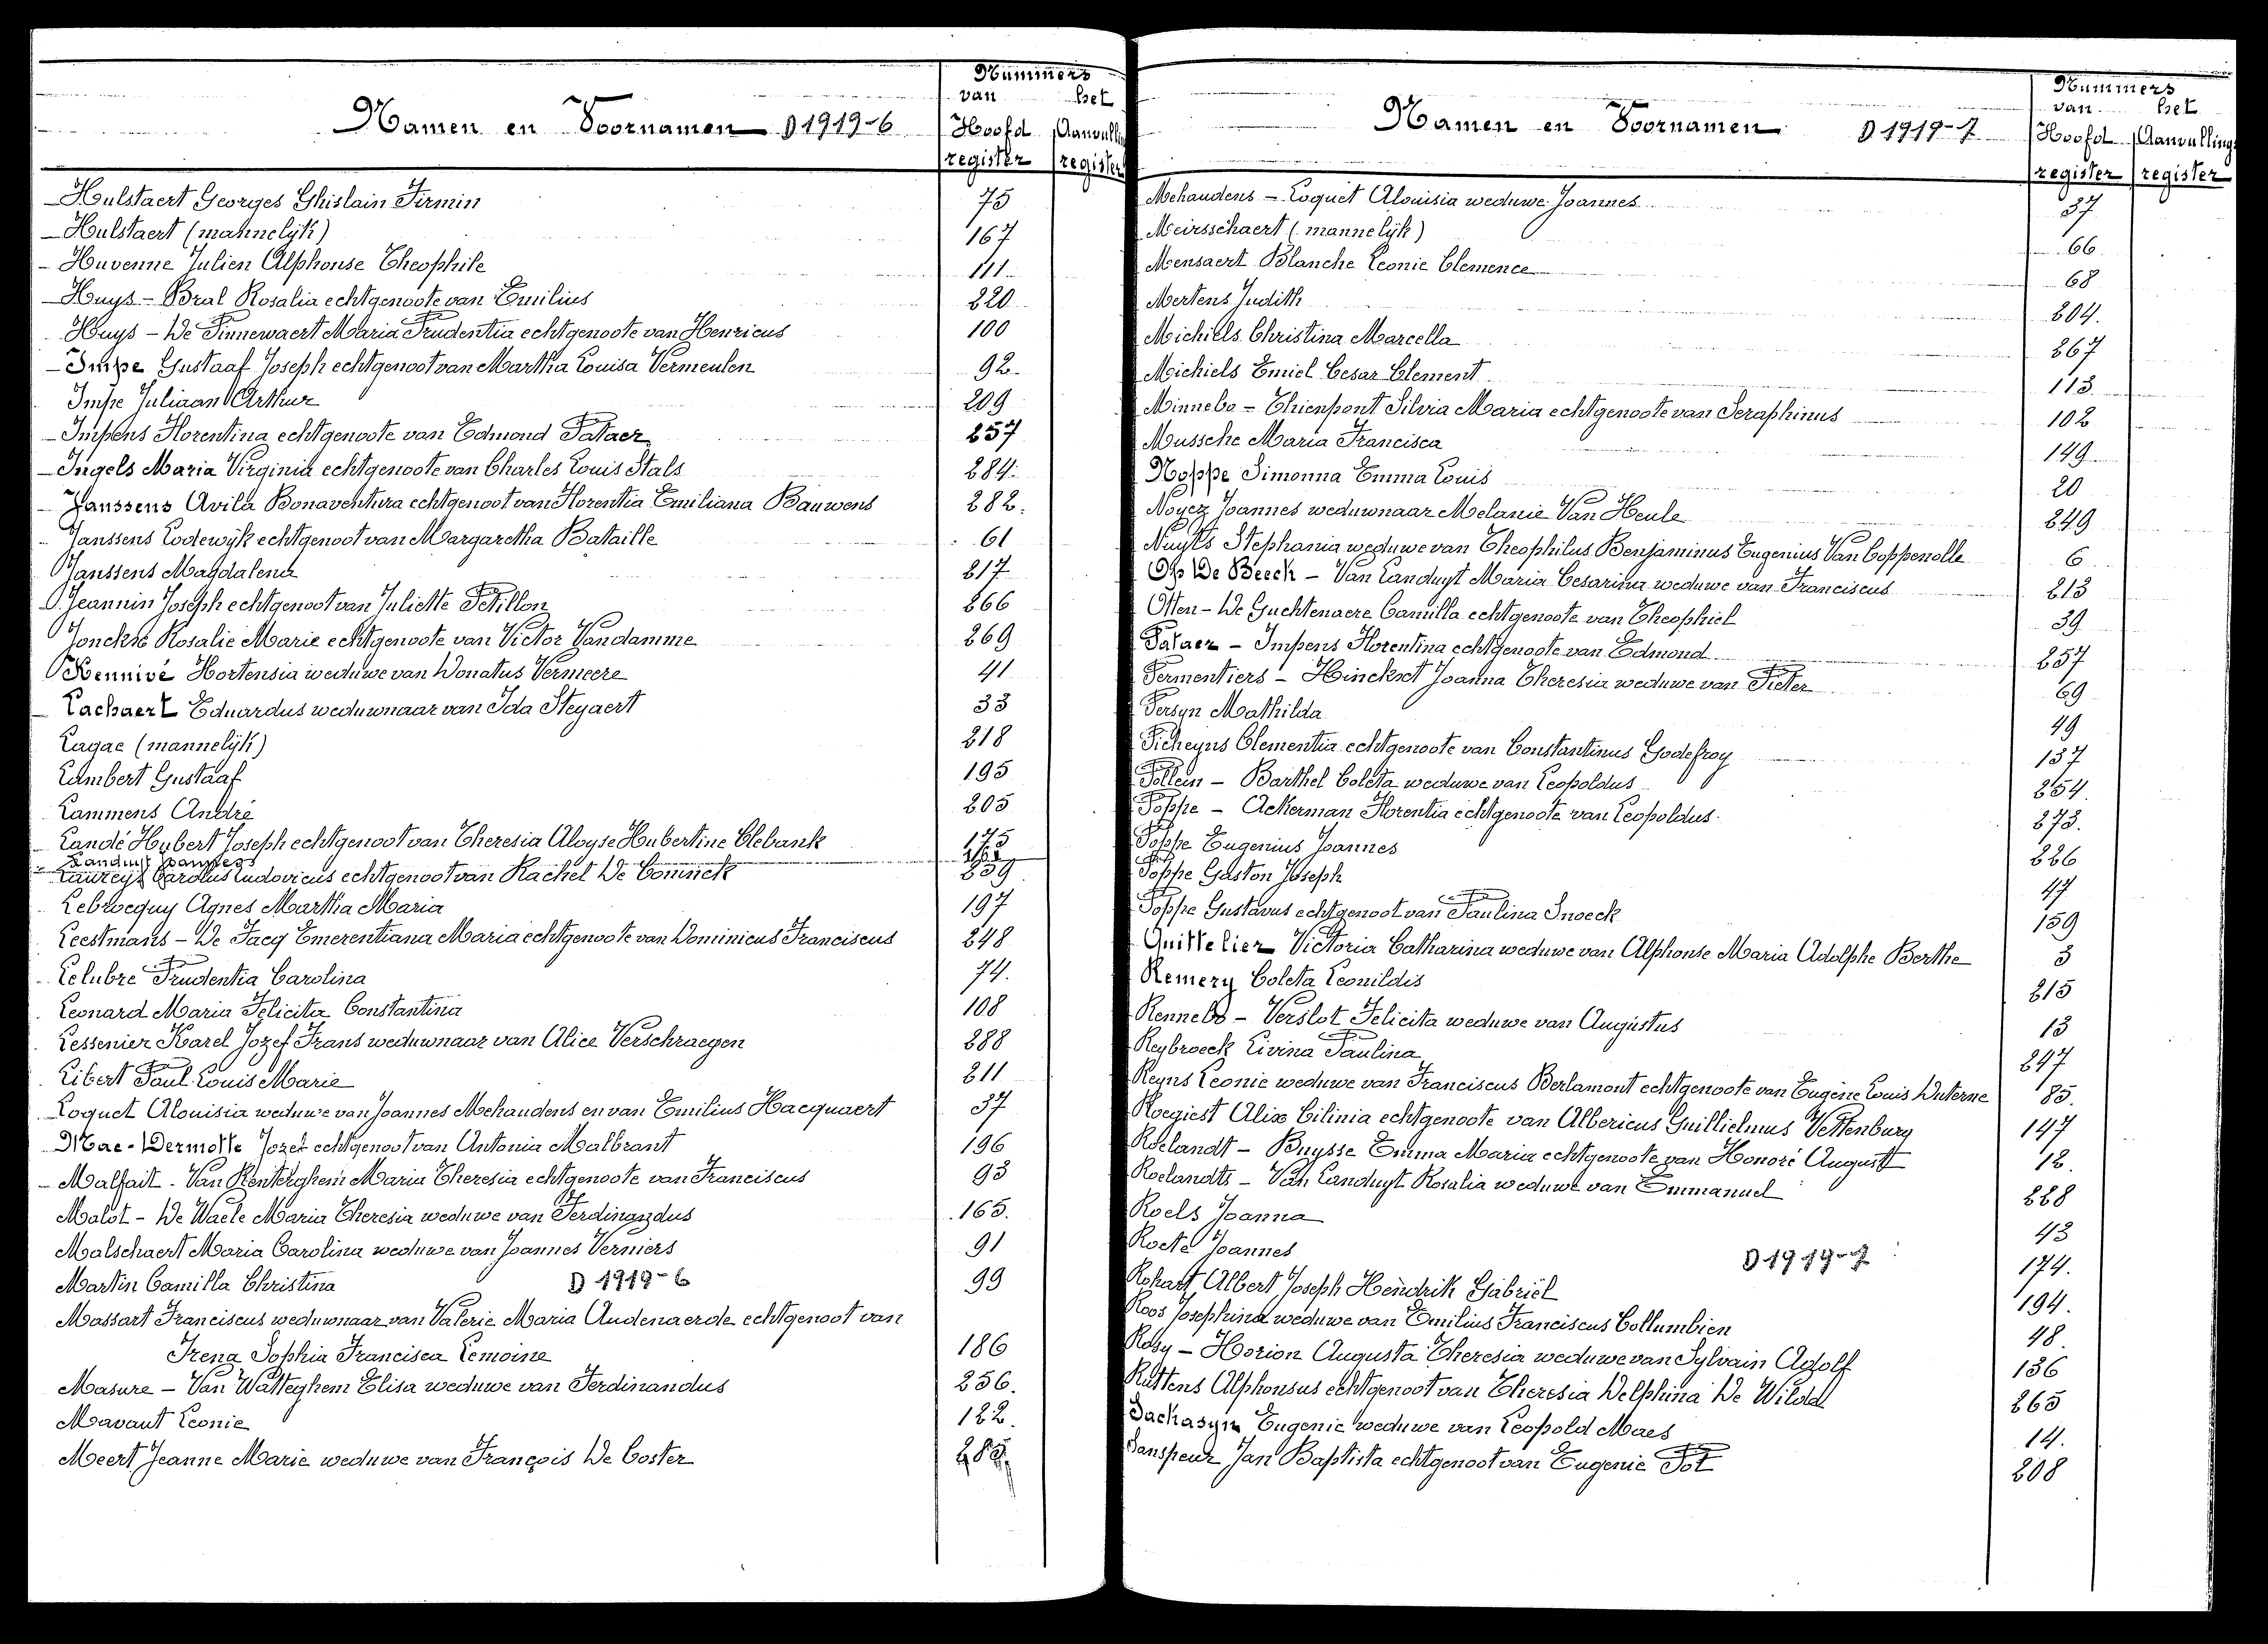 Nummers
van het
Namen en Voornamen D 1919-6 Hoofd Aanvulling
register register
Hulstaert Georges Ghislain Firmin 75
Hulstaert (mannelijk) 167
Huvenne Julien Alphonse Theophile 111
Huys - Bral Rosalia echtgenoote van Emilius 220
Huys - De Pinnewaert Maria Prudentia echtgenoote van Henricus 100
Impe Gustaaf Joseph echtgenoot van Martha Louisa Vermeulen 92
Impe Juliaan Arthur 209
Impens Florentina echtgenoote van Edmond Pataer 257
Ingels Maria Virginia echtgenoote van Charles Louis Stals 284
Janssens Avila Bonaventura echtgenoot van Florentia Emiliana Bauwens 282.
Janssens Lodewijk echtgenoot van Margaretha Bataille 61
Janssens Magdalena 217
Jeannin Joseph echtgenoot van Juliette Petillon 266
Jonckhe Rosalie Marie echtgenoote van Victor Vandamme 269
Kennivé Hortensia weduwe van Donatus Vermeere 41
Lachaert Eduardus weduwnaar van Ida Steyaert 33
Lagae (mannelijk) 218
Lambert Gustaaf 195
Lammens André 205
Landé Hubert Joseph echtgenoot van Theresia Aloyse Hubertine Clebank 175
Landuyt Joannes
Laureys Carolus Ludovicus echtgenoot van Rachel De Coninck 239
Lebrocquy Agnes Martha Maria 197
Leestmans - De Jaeg Emerentiana Maria echtgenoote van Dominicus Franciscus 248
Lelubre Prudentia Carolina 74.
Leonard Maria Felicita Constantina 108
Lessenier Karel Jozef Frans weduwnaar van Alice Verschraegen 288
Libert Paul Louis Marie 211
Loquet Alouisia weduwe van Joannes Mehaudens en van Emilius Hacquaert 37
Mac-Dermotte Jozef echtgenoot van Antonia Malbrant 196
Malfait - Van Renterghem Maria Theresia echtgenoote van Franciscus 93
Malot - De Waele Maria Theresia weduwe van Ferdinandus 165.
Malschaert Maria Carolina weduwe van Joannes Verniers 91
Martin Camilla Christina D 1919-6 99
Massart Franciscus weduwnaar van Valerie Maria Audenaerde echtgenoot van
Irena Sophia Francisca Lemoine 186
Masure - Van Watteghem Elisa weduwe van Ferdinandus 256.
Mavaut Leonie 122.
Meert Jeanne Marie weduwe van François De Coster 285
Nummers
van het
Namen en Voornamen D 1919-7 Hoofd Aanvullings
register register
Mehaudens - Loquet Alouisia weduwe Joannes 37
Meirsschaert (mannelijk) 66
Mensaert Blanche Leonie Clemence 68
Mertens Judith 204.
Michiels Christina Marcella 267
Michiels Emiel Cesar Clement 113
Minnebo - Thienpont Silvia Maria echtgenoote van Seraphinus 102
Mussche Maria Francisca 149
Noppe Simonna Emma Louis 20
Noyez Joannes weduwnaar Melanie Van Heule 249
Nuyts Stephania weduwe van Theophilus Benjaminus Eugenius Van Coppenolle 6
Op De Beeck - Van Landuyt Maria Cesarina weduwe van Franciscus 213
Otten - De Guchtenaere Camilla echtgenoote van Theophiel 39
Pataer - Impens Florentina echtgenoote van Edmond 257
Permentiers - Hinckaet Joanna Theresia weduwe van Pieter 69
Persyn Mathilda 49
Picheyns Clementia echtgenoote van Constantinus Godefroy 137
Pollein - Barthel Coleta weduwe van Leopoldus 254.
Poppe - Ackerman Florentia echtgenoote van Leopoldus 273.
Poppe Eugenius Joannes 226
Poppe Gaston Joseph 47
Poppe Gustavus echtgenoot van Paulina Snoeck 159
Quittelier Victoria Catharina weduwe van Alphonse Maria Adolphe Berthe 3
Remery Coleta Leonildis 215
Rennebo - Verslot Felicita weduwe van Augustus 13
Reybroeck Livina Paulina 247
Reyns Leonie weduwe van Franciscus Berlamont echtgenoote van Eugène Louis Duterne 85.
Roegiest Alix Cilinia echtgenoote van Albericus Guillielmus Vettenburg 147
Roelandt - Buysse Emma Maria echtgenoote van Honoré August 12.
Roelandts - Van Landuyt Rosalia weduwe van Emmanuel 228
Roels Joanna 43
Roete Joannes D 1919-7 174.
Rohart Albert Joseph Hendrik Gabriël 194.
Roos Josephina weduwe van Emilius Franciscus Collumbien 48.
Rosy - Horion Augusta Theresia weduwe van Sylvain Adolf 136
Ruttens Alphonsus echtgenoot van Theresia Delphina De Wilde 265
Sachasyn Eugenie weduwe van Leopold Maes 14.
Sanspeur Jan Baptista echtgenoot van Eugenie Pot 208